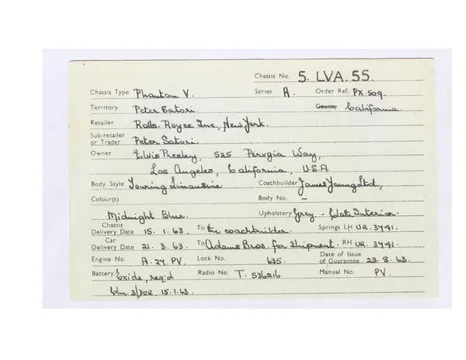 Chassis No. 5. LVA. 55.
Chassis Type Phantom V. Series A. Order Ref. PX.509.
Territory Peter Satori. County California
Retailer Rolls-Royce Inc, New York.
Sub-retailer or Trader Peter Satori.
Owner Elvis Presley, 525 Perugia Way,
Los Angeles, California, U.S.A
Body Style Touring Limousine Coachbuilder James Young Ltd,
Colour(s) Body No. -
Midnight Blue. Upholstery Grey - Cloth Interior.
Chassis Delivery Date 15. 1. 63. To the coachbuilder. Springs LH UR. 3741.
Car Delivery Date 21. 3. 63. To Adams Bros. for shipment. RH UR. 3741.
Engine No. A. 27. PV. Lock No. 635. Date of Issue of Guarantee 23. 8. 63.
Battery Exide, req'd Radio No. T. 536216 Manual No. PV.
15.1.63.